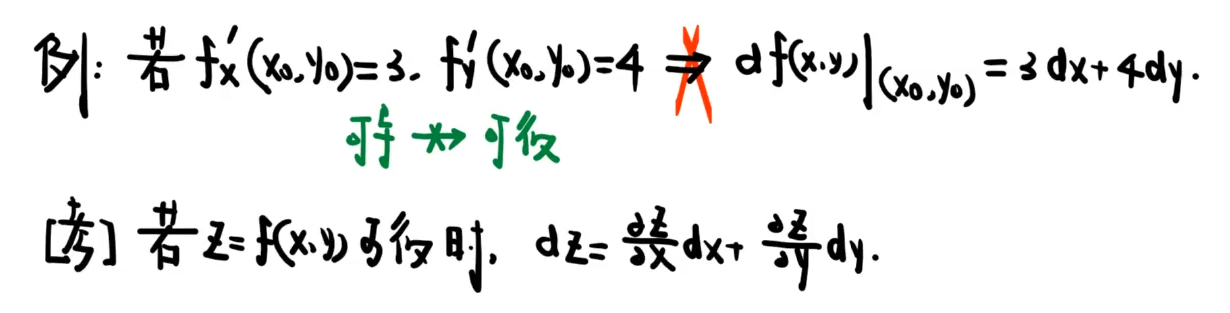 例: 若 f'x(x0,y0)=3. f'y(x0,y0)=4 ⇏ df(x,y)|(x0,y0) = 3dx+4dy.
可导 ↛ 可微
[考] 若 z=f(x,y) 可微时, dz= ∂z/∂x dx+ ∂z/∂y dy.